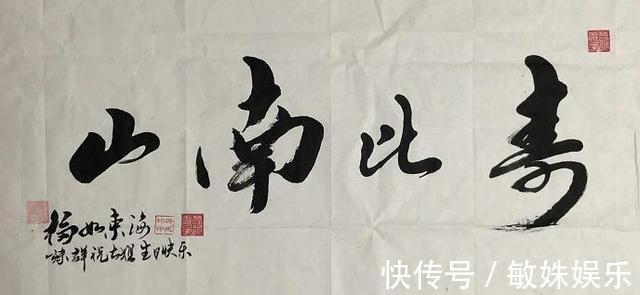 寿比南山
福如东海
群祝大姐生日快乐
快传号/敏姝娱乐